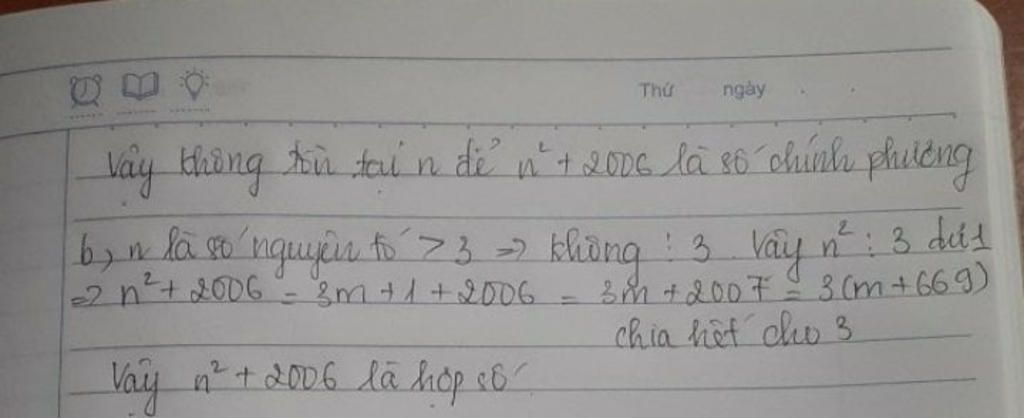 Thứ ngày
Vậy không tồn tại n để n² + 2006 là số chính phương
b, n là số nguyên tố > 3 => không : 3 Vậy n² : 3 dư 1
=> n² + 2006 = 3m + 1 + 2006 = 3m + 2007 = 3(m + 669)
chia hết cho 3
Vậy n² + 2006 là hợp số